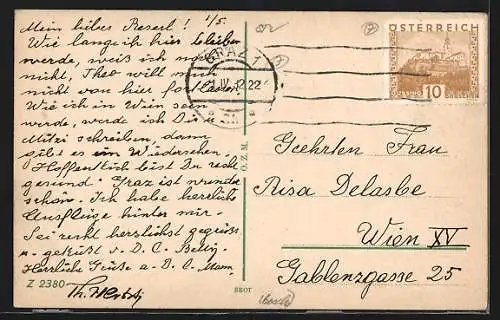 Mein liebes Reserl! 1/5.
Wie lange ich hier bleiben
werde, weiß ich noch
nicht, Theo will mich
nicht von hier fortlassen.
Wie ich in Wien sein
werde, werde ich Dir
Mitzi schreiben, dann
gibt es ein Wiedersehen.
Hoffentlich bist Du recht
gesund. Graz ist wunder
schön. Ich habe herrliche
Ausflüge hinter mir.
Sei recht herzlichst gegrüsst
u. geküßt v. D. C. Betty.
Herzliche Grüße a. D. C. Mam.
Z 2380
Ö. Z. M.
BROT
GRAZ 1
ÖSTERREICH
10
Geehrten Frau
Risa Delasbe
Wien XV
Gablenzgasse 25